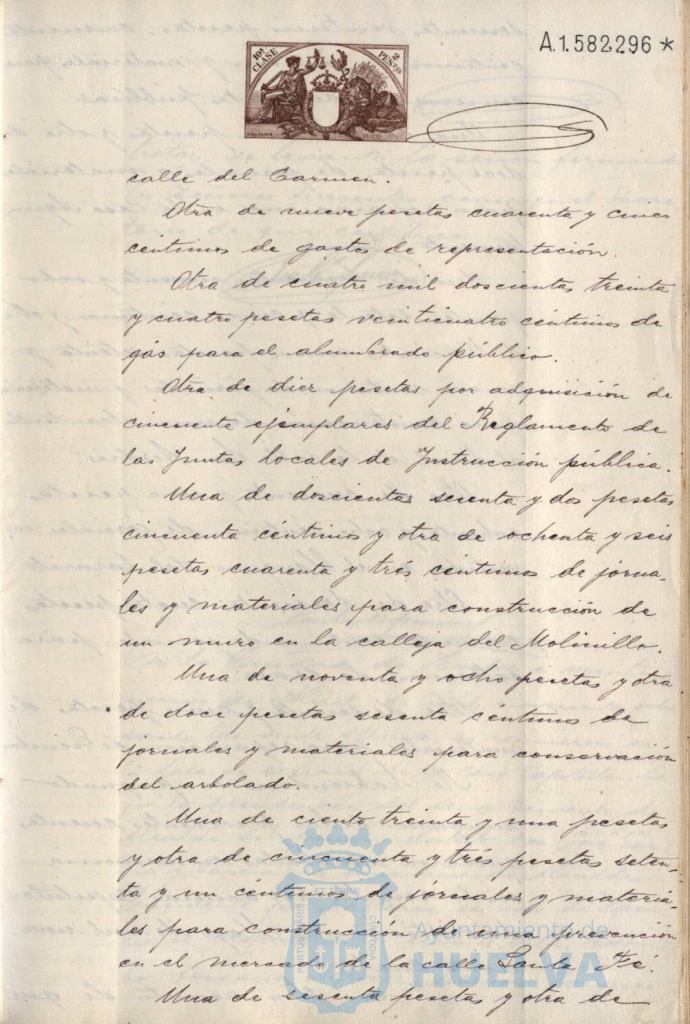 10ª CLASE
2 PESETAS
A.1.582.296 *
calle del Carmen.
Otra de nueve pesetas cuarenta y cinco
centimos de gastos de representación.
Otra de cuatro mil doscientas treinta
y cuatro pesetas veinticuatro céntimos de
gás para el alumbrado público.
Otra de diez pesetas por adquisición de
cincuenta ejemplares del Reglamento de
las Juntas locales de Instrucción pública.
Una de doscientas sesenta y dos pesetas
cincuenta céntimos y otra de ochenta y seis
pesetas cuarenta y trés céntimos de jorna-
les y materiales para construcción de
un muro en la calleja del Molinillo.
Una de noventa y ocho pesetas y otra
de doce pesetas sesenta céntimos de
jornales y materiales para conservación
del arbolado.
Una de ciento treinta y una pesetas
y otra de cincuenta y trés pesetas seten-
ta y un céntimos de jornales y materia-
les para construcción de una prevención
en el mercado de la calle Santa Fé.
Una de sesenta pesetas y otra de
Ayuntamiento de
HUELVA